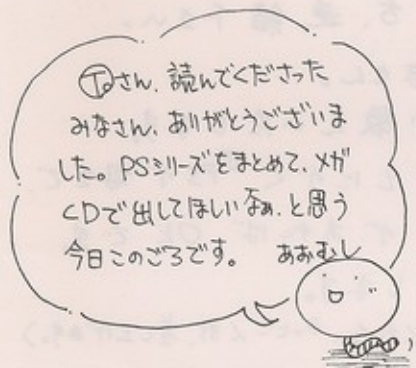 Ⓣさん、読んでくださった
みなさん、ありがとうございま
した。PSシリーズをまとめて、メガ
CDで出してほしいなぁ、と思う
今日このごろです。 あおむし